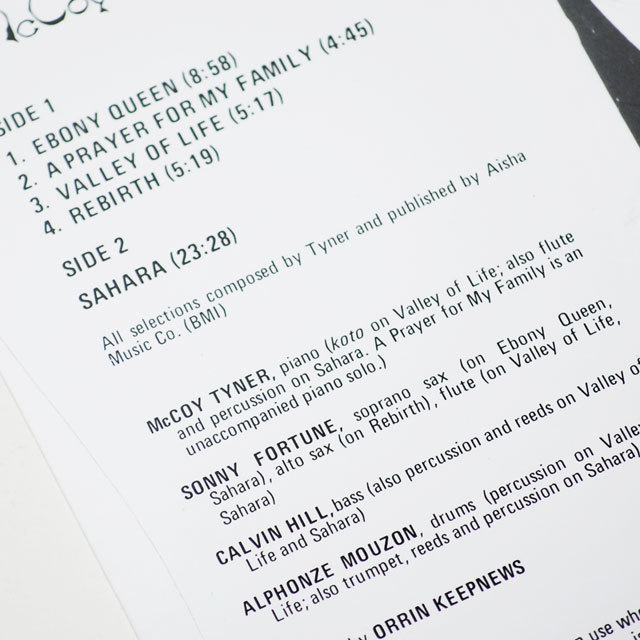 McCoy
SIDE 1
1. EBONY QUEEN (8:58)
2. A PRAYER FOR MY FAMILY (4:45)
3. VALLEY OF LIFE (5:17)
4. REBIRTH (5:19)
SIDE 2
SAHARA (23:28)
All selections composed by Tyner and published by Aisha
Music Co. (BMI)
McCOY TYNER, piano (koto on Valley of Life; also flute
and percussion on Sahara. A Prayer for My Family is an
unaccompanied piano solo.)
SONNY FORTUNE, soprano sax (on Ebony Queen,
Sahara), alto sax (on Rebirth), flute (on Valley of Life,
Sahara)
CALVIN HILL, bass (also percussion and reeds on Valley of
Life and Sahara)
ALPHONZE MOUZON, drums (percussion on Valley
Life; also trumpet, reeds and percussion on Sahara)
by ORRIN KEEPNEWS
use